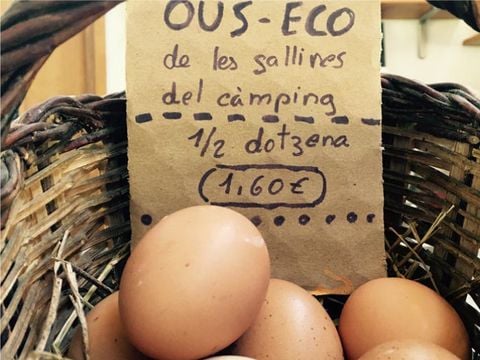 OUS-ECO
de les gallines
del càmping
1/2 dotzena
1,60€